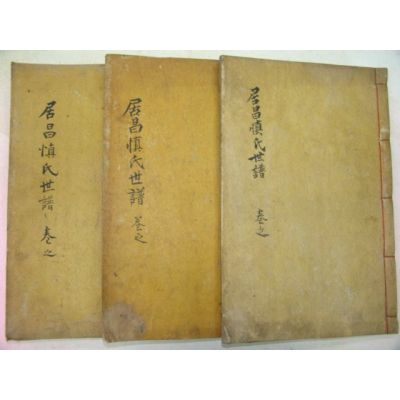 居昌愼氏世譜
卷之
居昌愼氏世譜
卷之
居昌愼氏世譜
卷之